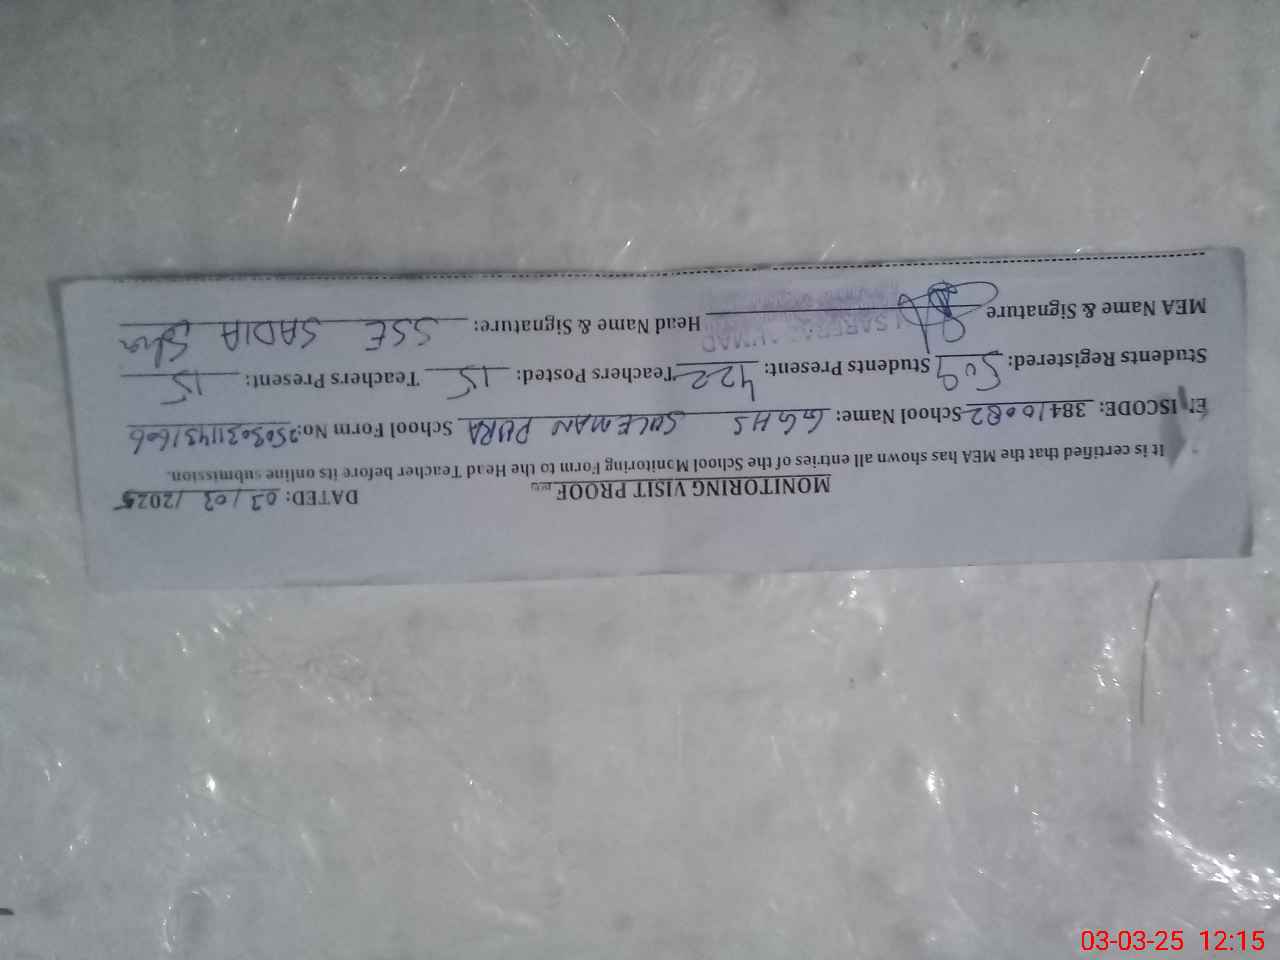 MONITORING VISIT PROOF
DATED: 03/03/2025
It is certified that the MEA has shown all entries of the School Monitoring Form to the Head Teacher before its online submission.
EMISCODE: 38410082 School Name: GGHS SULEMAN PURA School Form No:
Students Registered: 509 Students Present: 422 Teachers Posted: 15 Teachers Present: 15
MEA Name & Signature Head Name & Signature: SSE SADIA
03-03-25 12:15